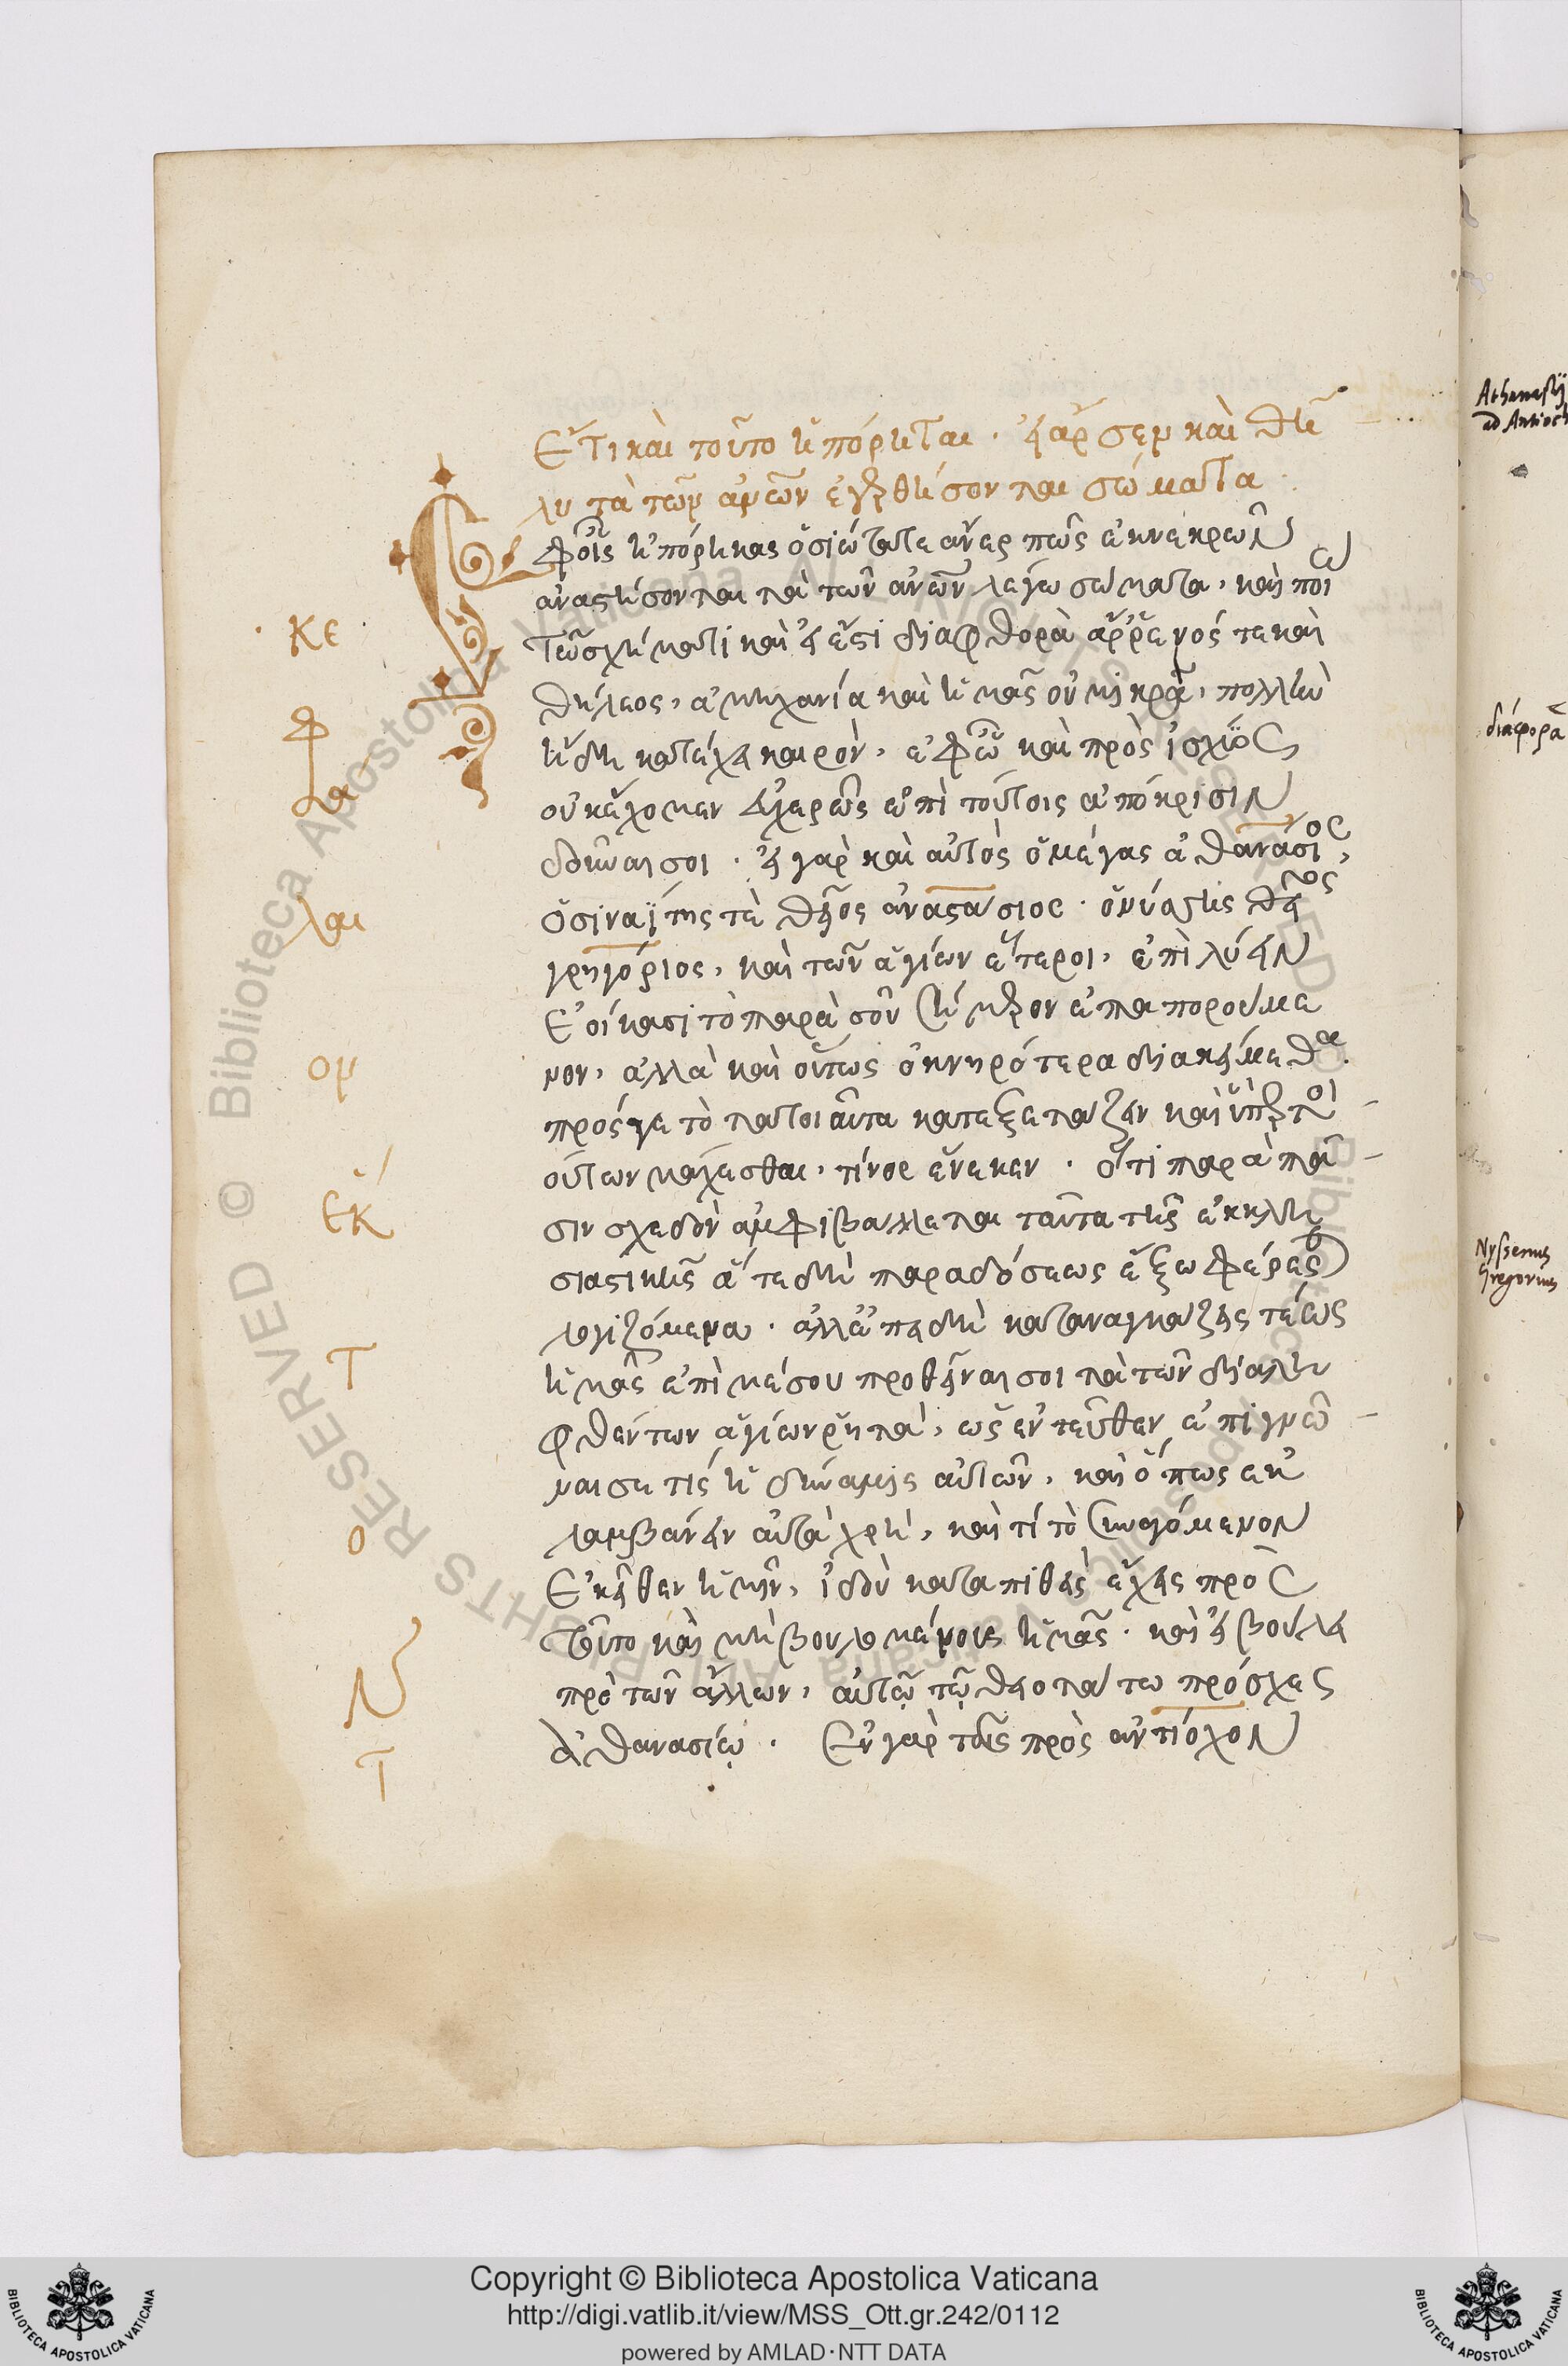 Ἔτι καὶ τοῦτο ἠπόρηται. εἰ ἄρσεν καὶ θῆ
λυ τὰ τῶν ἀνῶν ἐγερθήσονται σώματα.
Ἐφοῖς ἠπόρηκας ὁσιώτατε ἄνερ πῶς ἐκ νεκρῶν
ἀναστήσονται τὰ τῶν ἀνῶν λέγω σώματα, καὶ ποίω
τῶ σχήματι καὶ εἰ ἔστι διαφθορὰ ἄρρενός τε καὶ
θήλεος, ἀμηχανία καὶ ἡμᾶς οὐ μικρὰ, πολλὺν
ἤδη κατέχει καιρὸν, ἐφῶ καὶ πρὸς ἰσχύος
οὐκ ἔχομεν εὐχερῶς ἐπὶ τούτοις ἀπόκρισιν
δοῦναι σοι. εἰ γὰρ καὶ αὐτὸς ὁ μέγας ἀθανάσιος,
ὁ σιναΐτης τὲ θεῖος ἀναστάσιος. ὁ νύσσης θεῖος
γρηγόριος, καὶ τῶν ἁγίων ἕτεροι, ἐπιλύειν
ἐοίκασι τὸ παρὰ σοῦ σήμερον ἐπαπορούμε
νον, ἀλλὰ καὶ οὕτως ὀκνηρότερα διακείμεθα
πρός γε τὸ τὰ τοιαῦτα κατεξετάζειν καὶ ὑπὲρ τοι
ούτων μάχεσθαι, τίνος ἕνεκεν. ὅτι παρὰ πᾶ
σιν σχεδὸν ἀμφιβάλλεται ταῦτα τῆς ἐκκλη
σιαστικῆς ἅτε δὴ παραδόσεως ἔξω φέρεσθαι
λογιζόμενα. ἀλλ' ἐπεδὴ καταναγκάζεις τέως
ἡμᾶς ἐπὶ μέσου προθεῖναι σοι τὰ τῶν διαλη
φθέντων ἁγίων ῥητὰ, ὡς ἐντεῦθεν ἐπιγνῶ
ναι σε τίς ἡ δύναμις αὐτῶν, καὶ ὅπως ἐκ
λαμβάνειν αὐτὰ χρὴ, καὶ τί τὸ συναγόμενον
ἐκεῖθεν ἡμῖν, ἰδοὺ καταπειθεῖς ἔχεις πρὸς
τοῦτο καὶ μὴ βουλομένους ἡμᾶς. καὶ εἰ βούλει
πρὸ τῶν ἄλλων, αὐτῷ τῷ θειοτάτω πρόσχες
ἀθανασίῳ. Ἐν γὰρ τοῖς πρὸς ἀντίοχον
κε
φα
λαι
ον
ἑκ
Τ
ο
ν
Τ
Athanasij
ad Antioch
διάφορα
Nyssenus
Gregorius
Copyright © Biblioteca Apostolica Vaticana
http://digi.vatlib.it/view/MSS_Ott.gr.242/0112
powered by AMLAD·NTT DATA
BIBLIOTECA APOSTOLICA VATICANA
BIBLIOTECA APOSTOLICA VATICANA